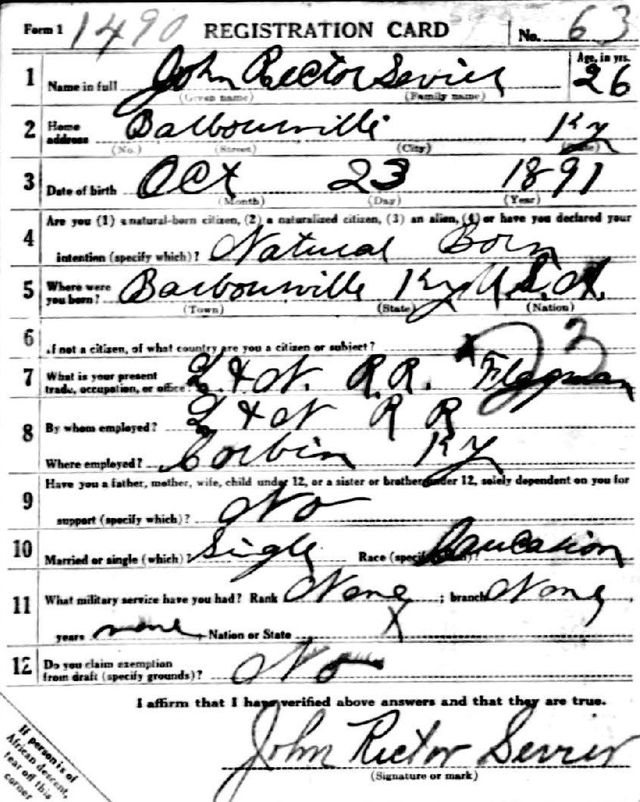 Form 1 1490 REGISTRATION CARD No. 63
1 Name in full John Rector Sevier Age, in yrs. 26
(Given name) (Family name)
2 Home address Barbourville Ky
(No.) (Street) (City) (State)
3 Date of birth Oct 23 1891
(Month) (Day) (Year)
4 Are you (1) a natural-born citizen, (2) a naturalized citizen, (3) an alien, (4) or have you declared your
intention (specify which)? Natural Born
5 Where were you born? Barbourville Ky U.S.A.
(Town) (State) (Nation)
6 If not a citizen, of what country are you a citizen or subject? x
23
7 What is your present trade, occupation, or office? L & N. R.R. Flagman
8 By whom employed? L & N R R
Where employed? Corbin Ky
9 Have you a father, mother, wife, child under 12, or a sister or brother under 12, solely dependent on you for
support (specify which)? No
10 Married or single (which)? Single Race (specify which)? Caucasion
11 What military service have you had? Rank None ; branch None ;
years none ; Nation or State X
12 Do you claim exemption from draft (specify grounds)? No
I affirm that I have verified above answers and that they are true.
John Rector Sevier
(Signature or mark)
If person is of
African descent,
tear off this
corner